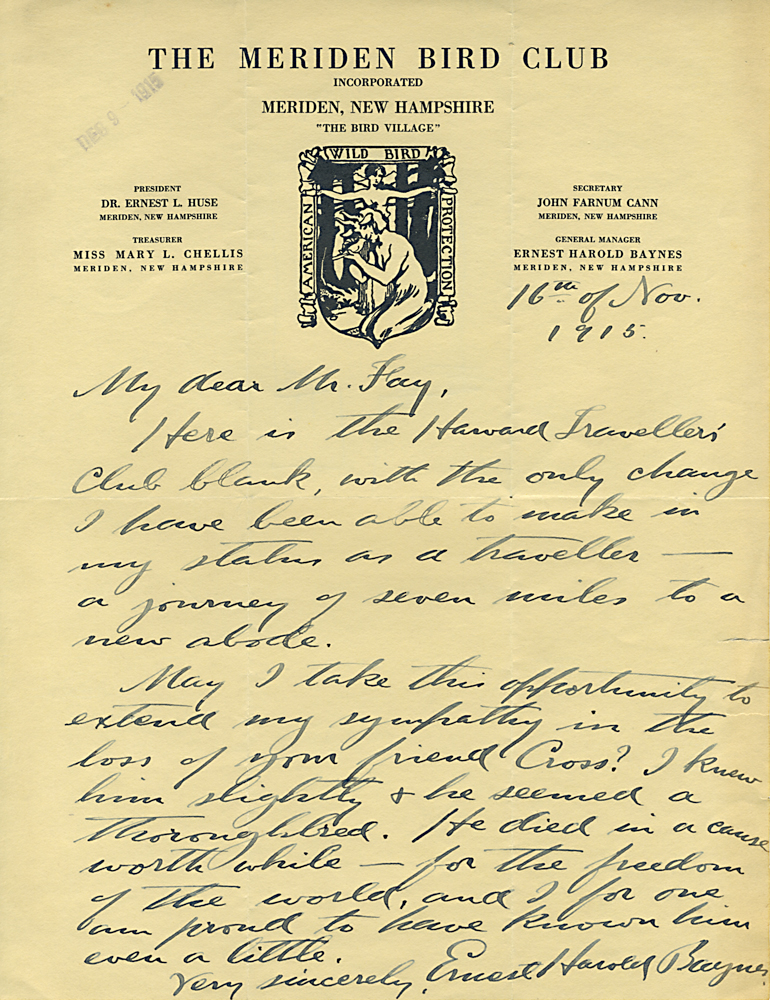 THE MERIDEN BIRD CLUB
INCORPORATED
MERIDEN, NEW HAMPSHIRE
"THE BIRD VILLAGE"
DEC 9 - 1915
WILD BIRD
AMERICAN
PROTECTION
PRESIDENT
DR. ERNEST L. HUSE
MERIDEN, NEW HAMPSHIRE
TREASURER
MISS MARY L. CHELLIS
MERIDEN, NEW HAMPSHIRE
SECRETARY
JOHN FARNUM CANN
MERIDEN, NEW HAMPSHIRE
GENERAL MANAGER
ERNEST HAROLD BAYNES
MERIDEN, NEW HAMPSHIRE
16th of Nov.
1915.
My dear Mr. Fay,
Here is the Harvard Travellers'
Club blank, with the only change
I have been able to make in
my status as a traveller —
a journey of seven miles to a
new abode.
May I take this opportunity to
extend my sympathy in the
loss of your friend Cross? I knew
him slightly & he seemed a
thoroughbred. He died in a cause
worth while — for the freedom
of the world, and I for one
am proud to have known him
even a little.
Very sincerely, Ernest Harold Baynes.